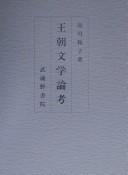 王朝文学論考
武蔵野書院